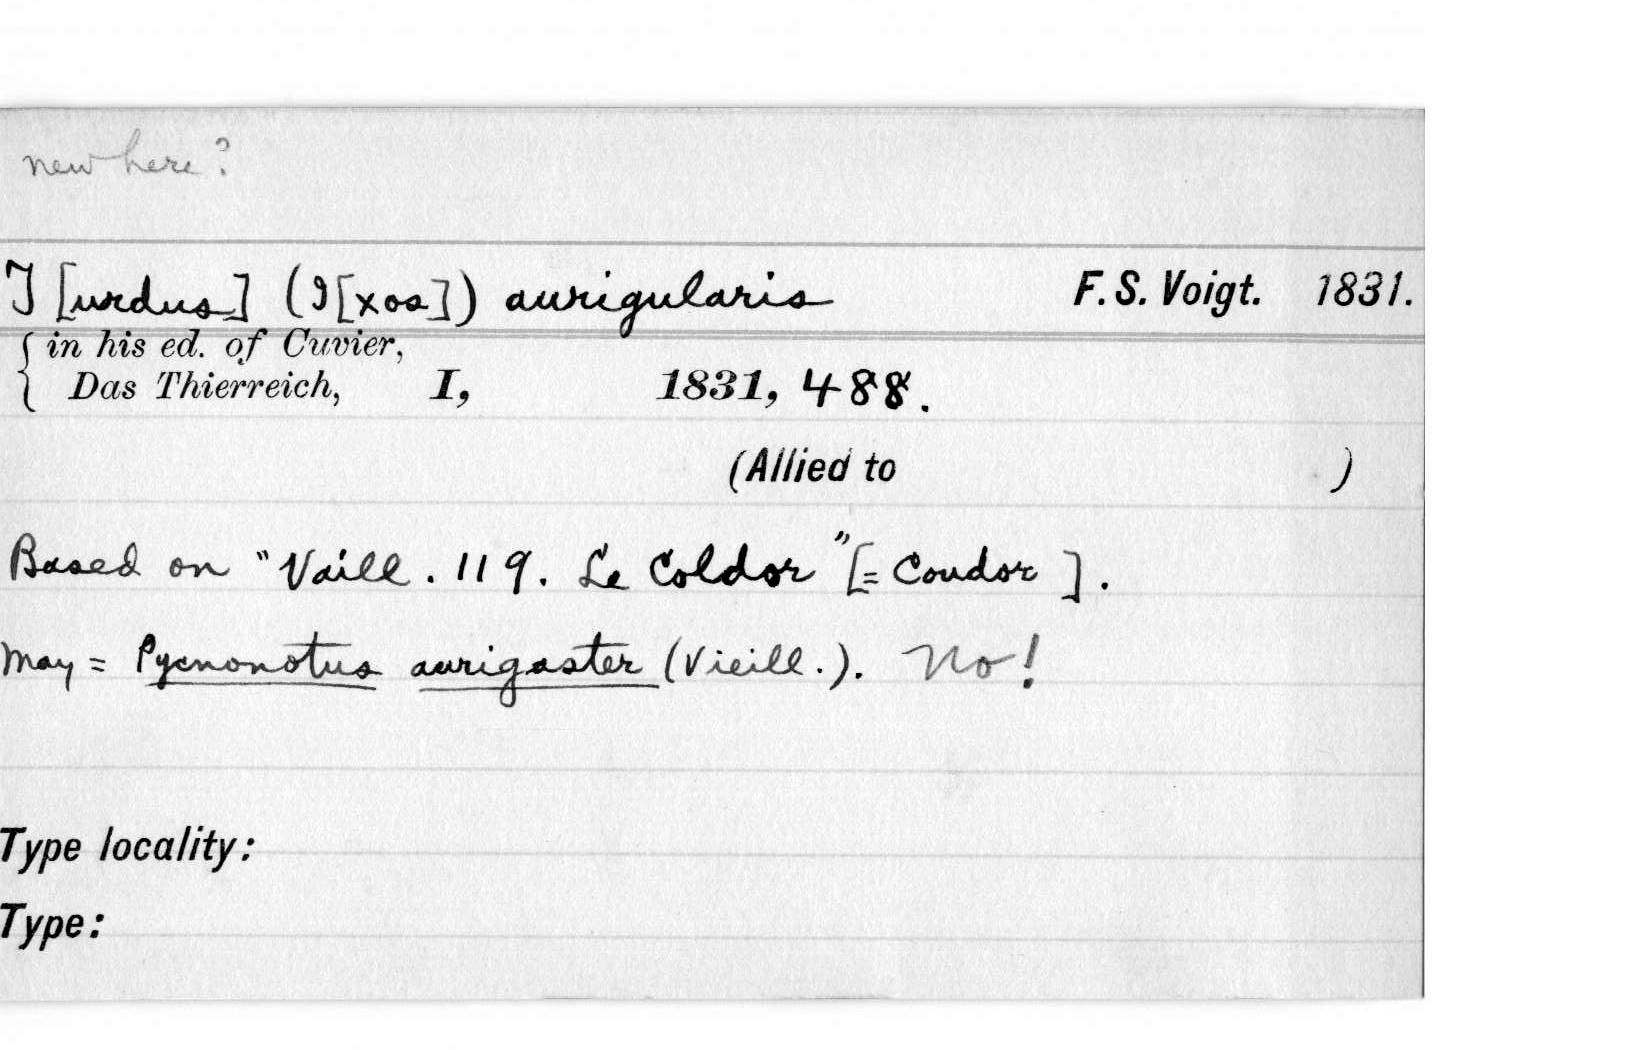 new here?
T[urdus] (I[xos]) aurigularis F. S. Voigt. 1831.
{ in his ed. of Cuvier,
Das Thierreich, I, 1831, 488.
(Allied to )
Based on "Vaill. 119. Le Coldor" [= Coudor].
May = Pycnonotus aurigaster (Vieill.). No!
Type locality:
Type: